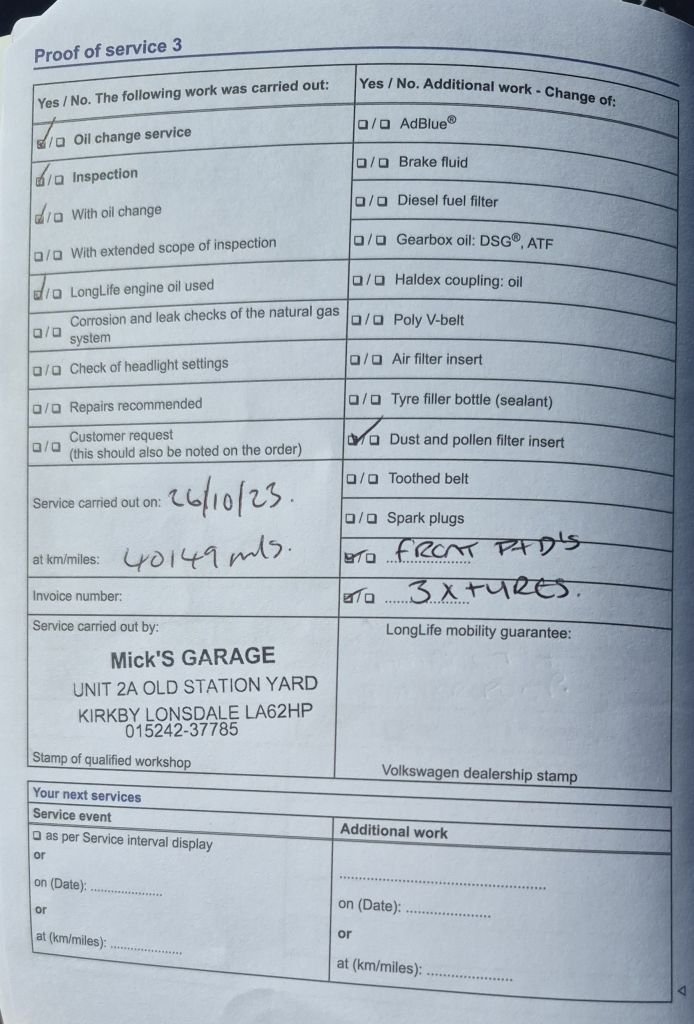 Proof of service 3
Yes / No. The following work was carried out:
☑/☐ Oil change service
☑/☐ Inspection
☑/☐ With oil change
☐/☐ With extended scope of inspection
☑/☐ LongLife engine oil used
☐/☐ Corrosion and leak checks of the natural gas
system
☐/☐ Check of headlight settings
☐/☐ Repairs recommended
☐/☐ Customer request
(this should also be noted on the order)
Service carried out on: 26/10/23.
at km/miles: 40149 mls.
Invoice number:
Service carried out by:
Mick'S GARAGE
UNIT 2A OLD STATION YARD
KIRKBY LONSDALE LA62HP
015242-37785
Stamp of qualified workshop
Yes / No. Additional work - Change of:
☐/☐ AdBlue®
☐/☐ Brake fluid
☐/☐ Diesel fuel filter
☐/☐ Gearbox oil: DSG®, ATF
☐/☐ Haldex coupling: oil
☐/☐ Poly V-belt
☐/☐ Air filter insert
☐/☐ Tyre filler bottle (sealant)
☑/☐ Dust and pollen filter insert
☐/☐ Toothed belt
☐/☐ Spark plugs
☑/☐ FRONT PAD'S
☑/☐ 3 X TYRES.
LongLife mobility guarantee:
Volkswagen dealership stamp
Your next services
Service event
☐ as per Service interval display
or
on (Date): ....................
or
at (km/miles): ....................
Additional work
..........................................................
on (Date): .......................
or
at (km/miles): .......................